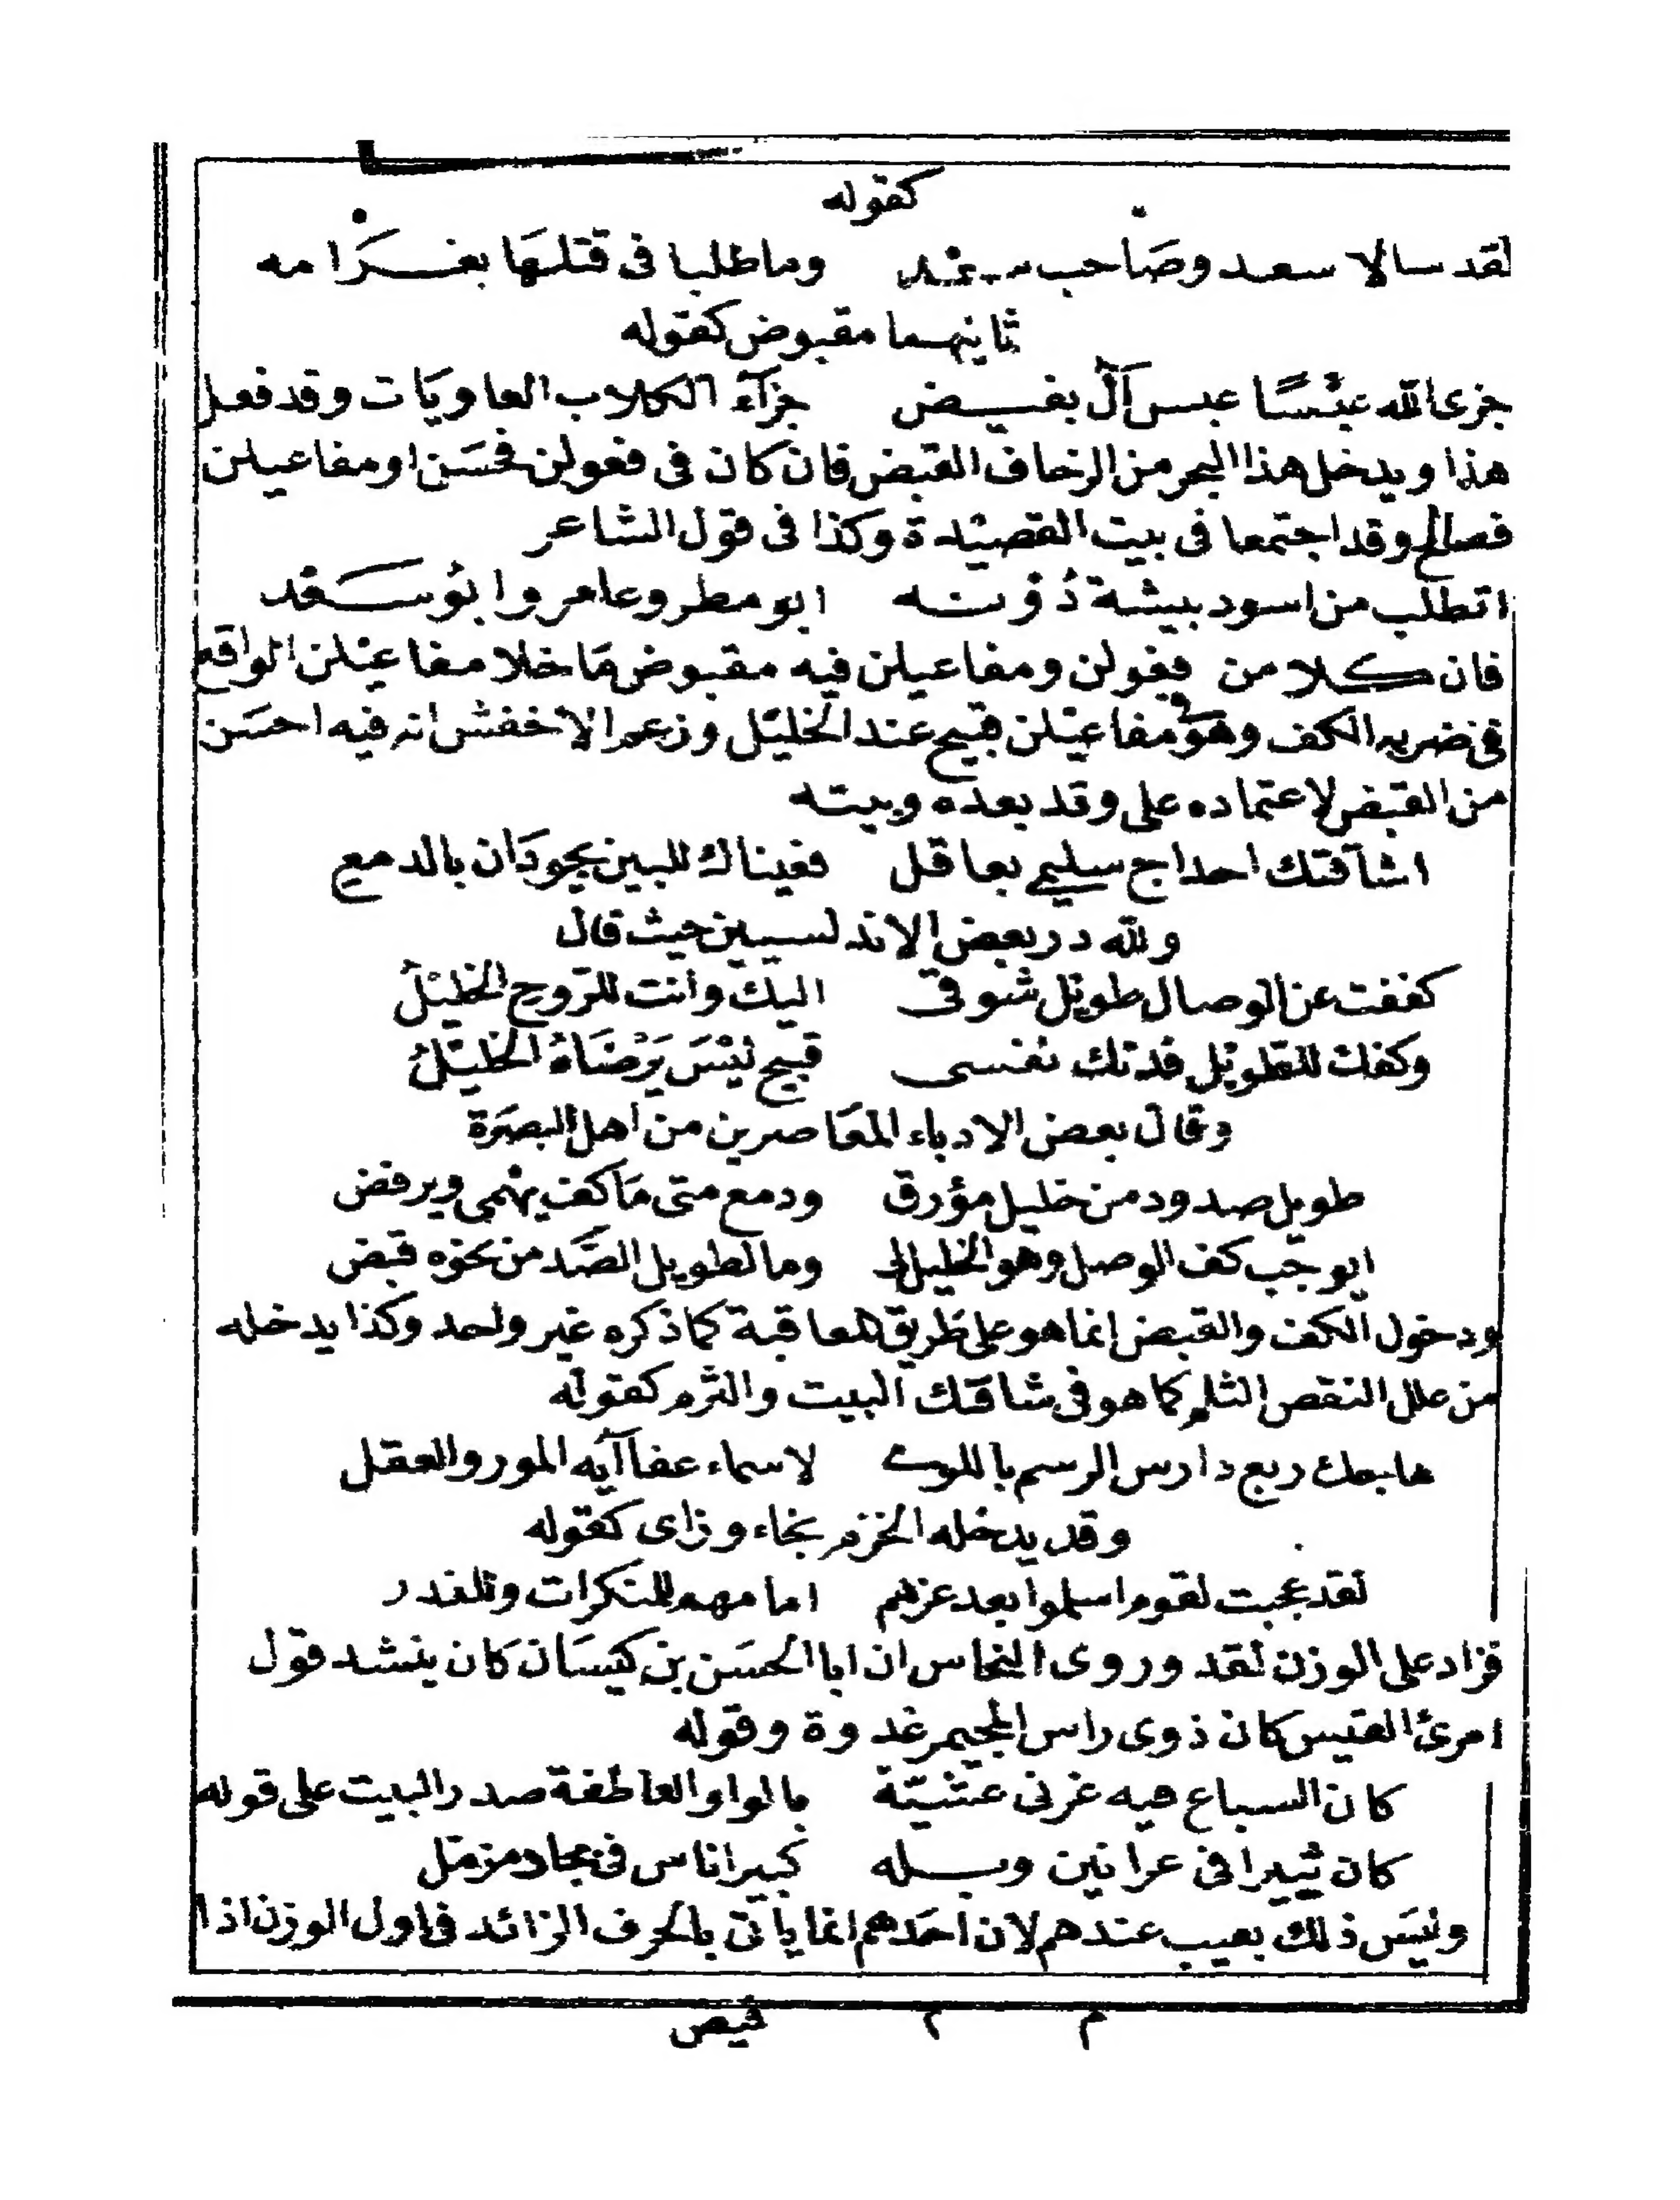 كقوله
لقد سالا سعد وصاحب سعد وما طلبا فى قتلها بغرامه
ثانيهما مقبوض كقوله
جزى الله عبسًا عبس آل بغيض جزآء الكلاب العاويات وقد فعل
هذا ويدخل هذا البحر من الزحاف القبض فان كان فى فعولن فحسن او مفاعيلن
فصالح وقد اجتمعا فى بيت القصيدة وكذا فى قول الشاعر
اتطلب من اسود بيشة دونه ابو مطر وعامر وابو سعد
فان كلا من فعولن ومفاعيلن فيه مقبوض ما خلا مفاعيلن الواقع
فى ضربه الكف وهو فى مفاعيلن قبيح عند الخليل وزعم الاخفش انه فيه احسن
من القبض لاعتماده على وقد بعده وبيته
اشآقتك احداج سليمى بعاقل فعيناك للبين يجودان بالدمع
ولله در بعض الاندلسيين حيث قال
كففت عن الوصال طويل شوقى اليك وانت للروح الخليل
وكفك للطويل فدتك نفسى قبيح ليس يرضاه الخليل
وقال بعض الادباء المعاصرين من اهل البصرة
طويل صدود من خليل مؤرق ودمع متى ما كف يهمى ويرفض
ايوجب كف الوصل وهو الخليل لى وما لطويل الصد من نحوه قبض
ودخول الكف والقبض انما هو على طريق المعاقبة كما ذكره غير واحد وكذا يدخله
من علل النقص الثلم كما هو فى شاقتك البيت والثرم كقوله
هاجك ربع دارس الرسم باللوى لاسماء عفا آيه المور والعقل
وقد يدخله الخزم بخاء وزاى كقوله
لقد عجبت لقوم اسلموا بعد عزهم امامهم للمنكرات وللغدر
فزاد على الوزن لقد وروى النحاس ان ابا الحسن بن كيسان كان ينشد قول
امرئ القيس كان ذوى راس المجيمر غدوة وقوله
كان السباع فيه غرقى عشية بالواو العاطفة صدر البيت على قوله
كان ثبيرا فى عرانين وبله كبير اناس فى بجاد مزمل
وليس ذلك بعيب عندهم لان احدهم انما ياتى بالحرف الزائد فى اول الوزن اذا